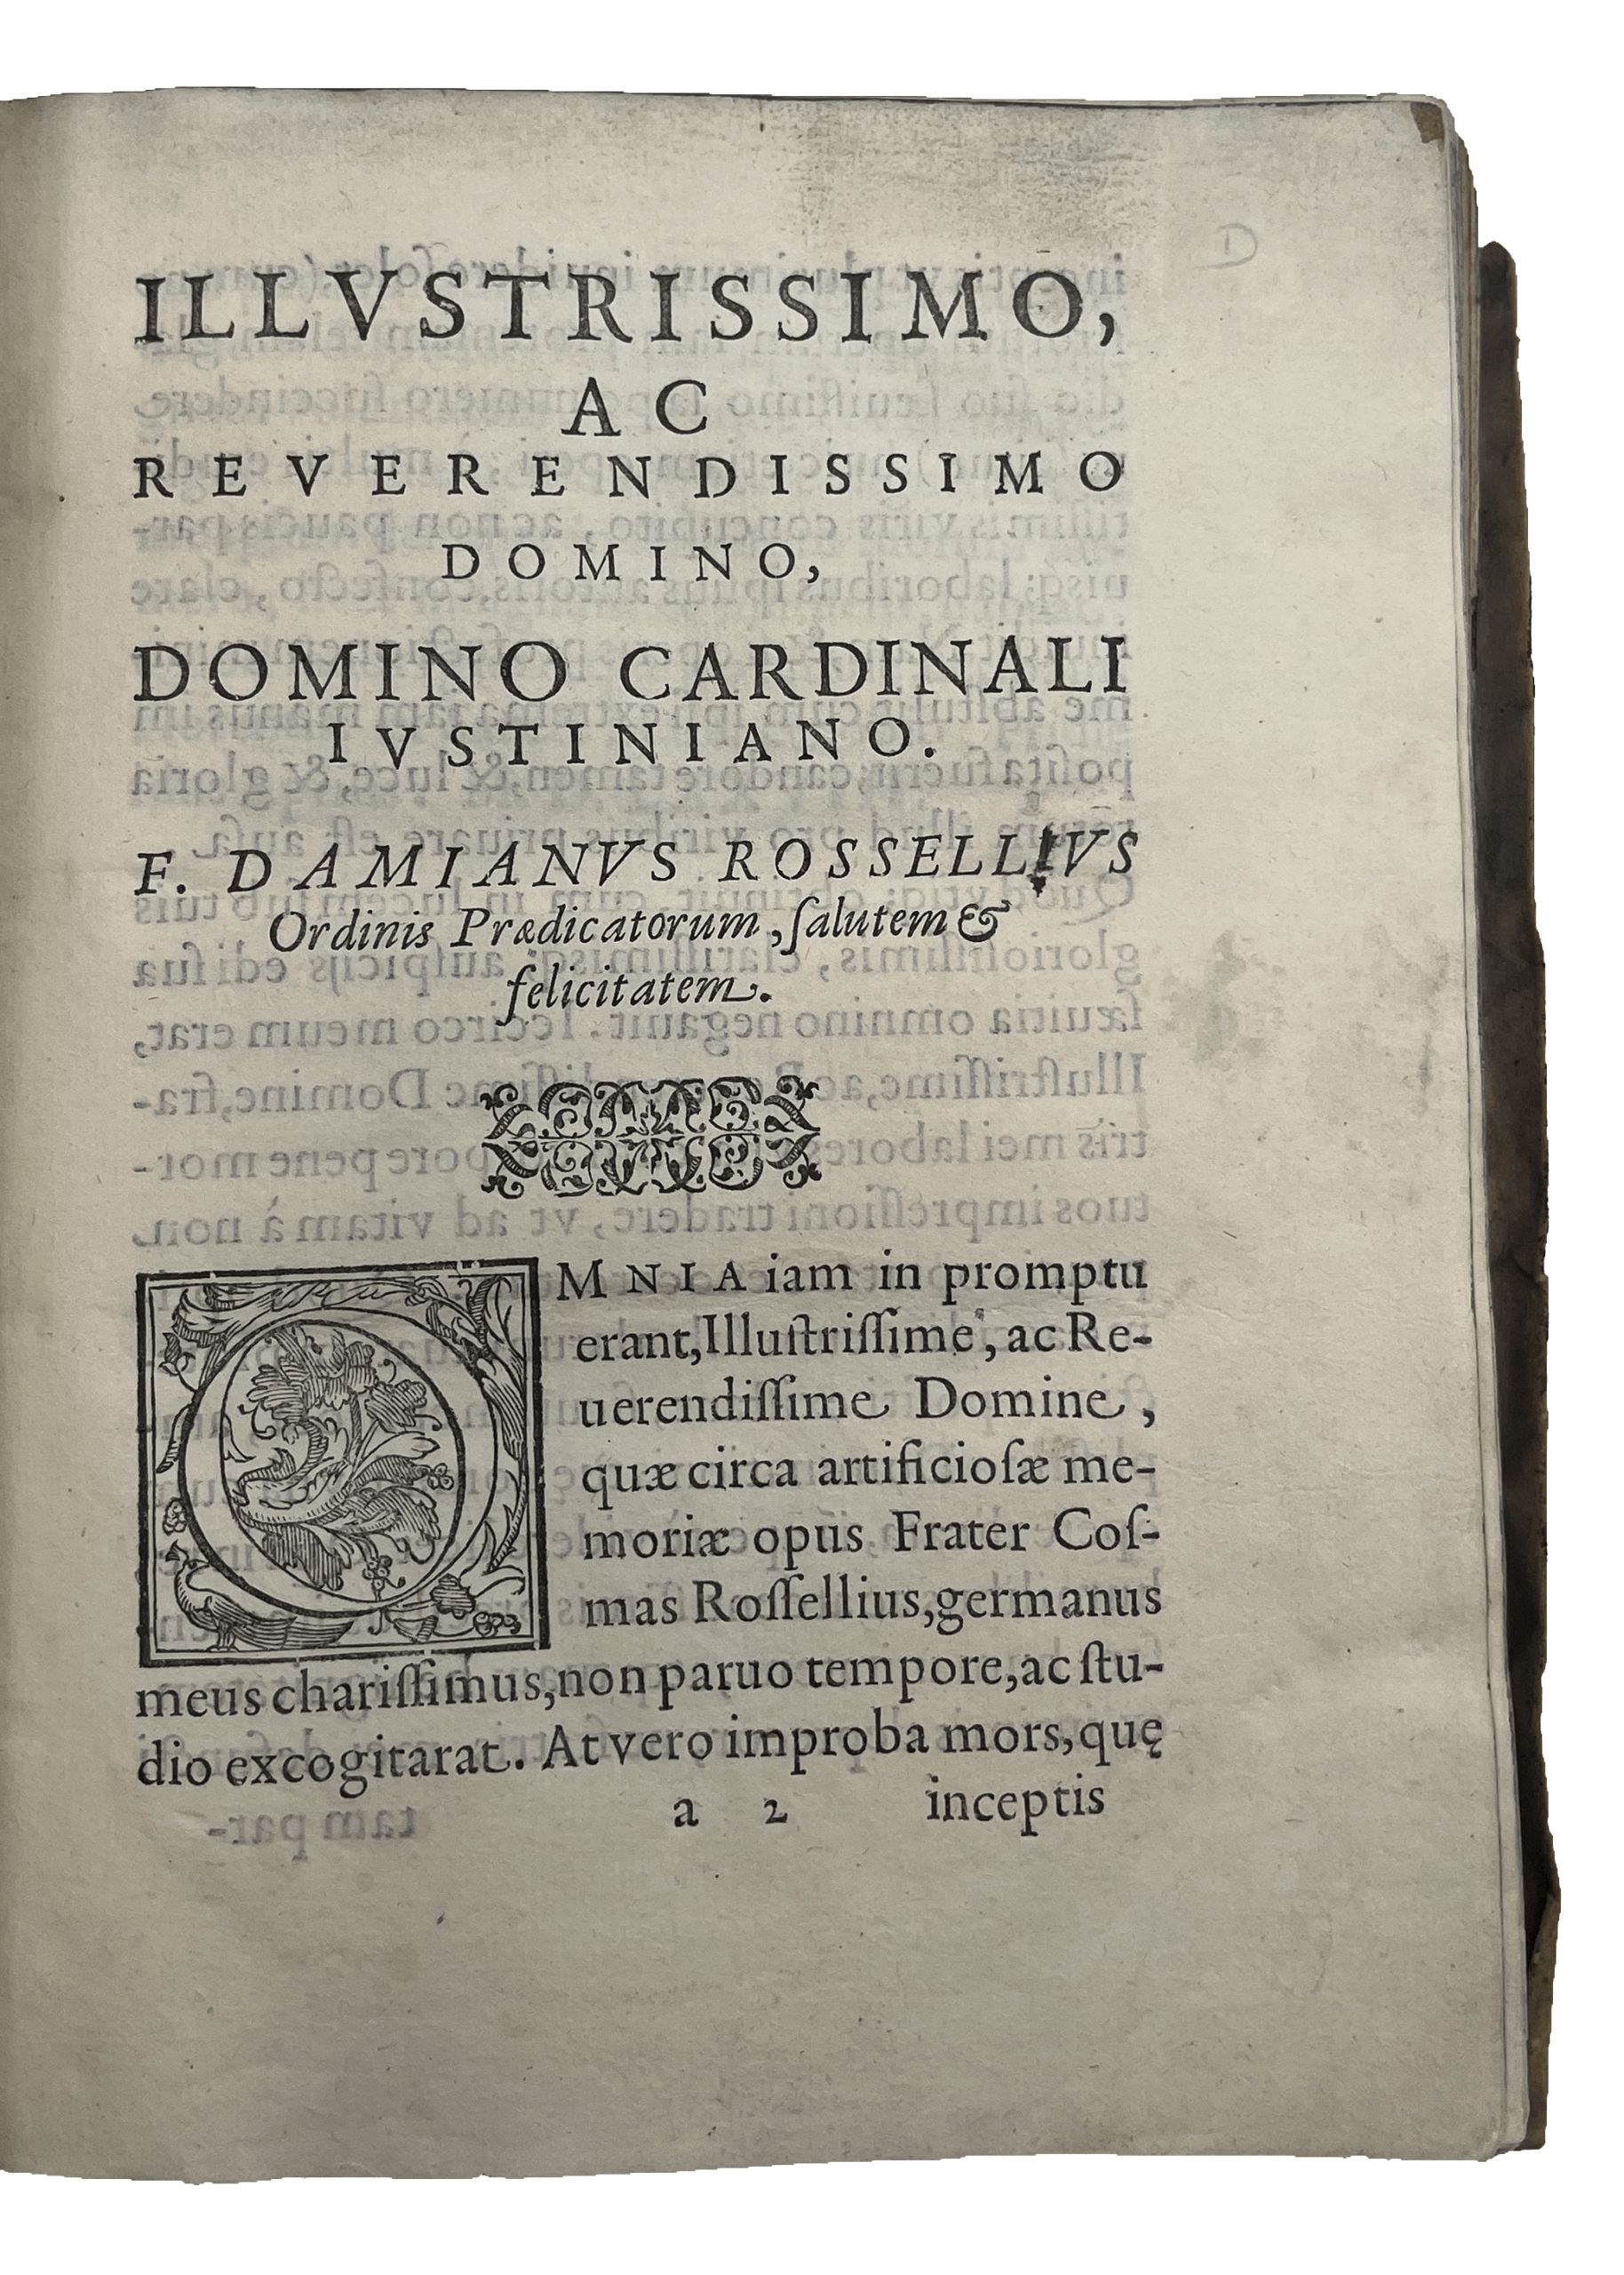 ILLVSTRISSIMO,
AC
REVERENDISSIMO
DOMINO,
DOMINO CARDINALI
IVSTINIANO.
F. DAMIANVS ROSSELLIVS
Ordinis Prædicatorum, ſalutem &
felicitatem.
OMNIA iam in promptu
erant, Illuſtriſſime, ac Re-
uerendiſſime Domine,
quæ circa artificioſæ me-
moriæ opus Frater Coſ-
mas Roſſellius, germanus
meus chariſſimus, non paruo tempore, ac ſtu-
dio excogitarat. At vero improba mors, quę
a 2 inceptis